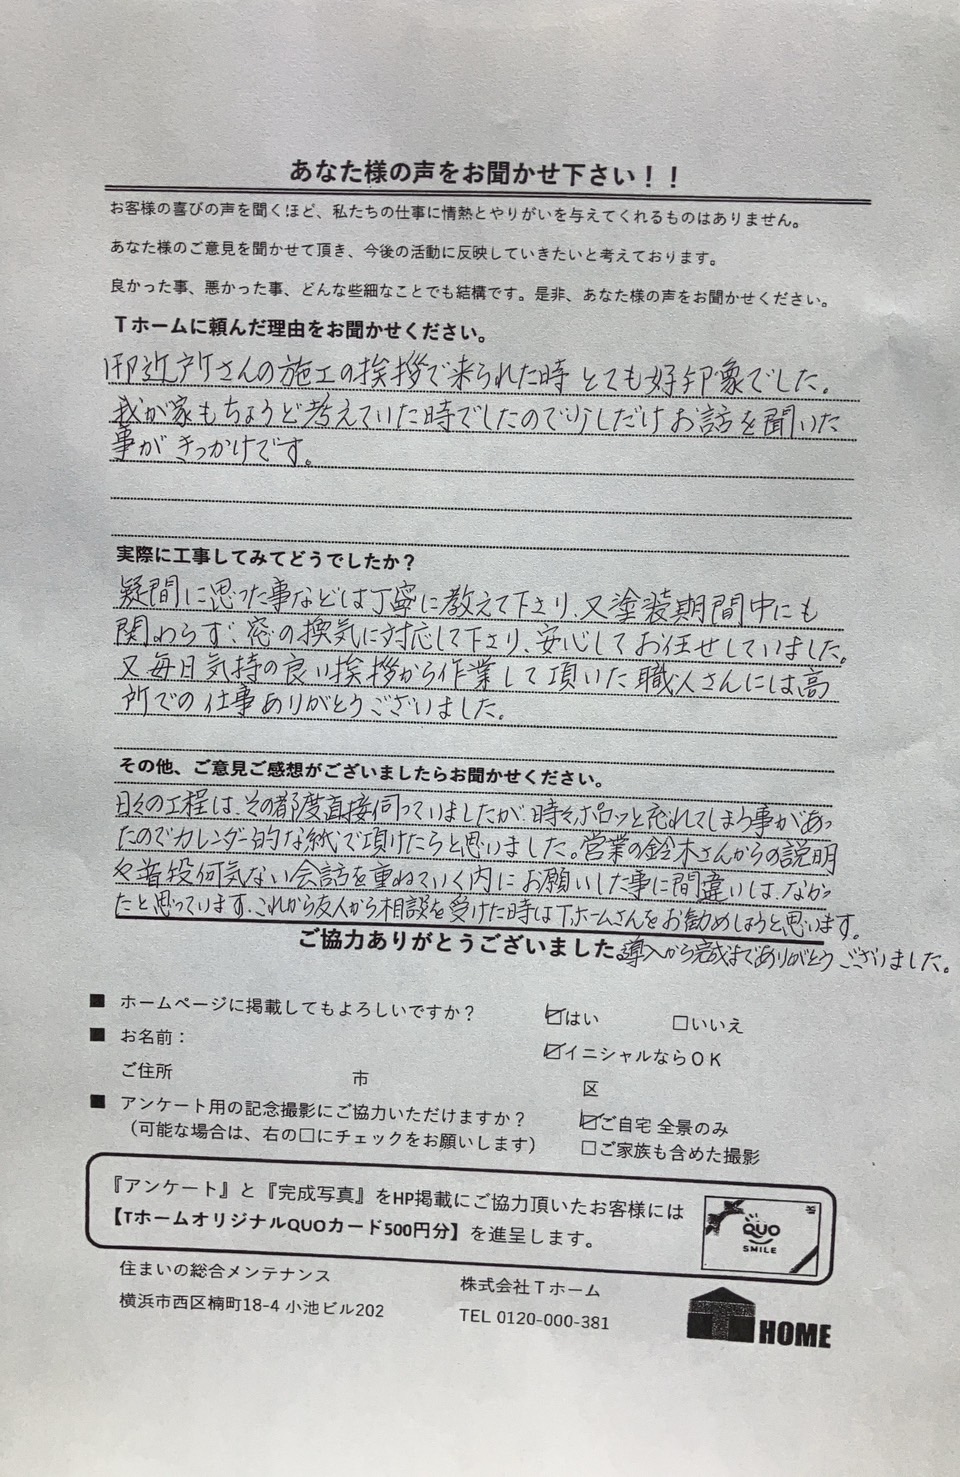 あなた様の声をお聞かせ下さい！！
お客様の喜びの声を聞くほど、私たちの仕事に情熱とやりがいを与えてくれるものはありません。
あなた様のご意見を聞かせて頂き、今後の活動に反映していきたいと考えております。
良かった事、悪かった事、どんな些細なことでも結構です。是非、あなた様の声をお聞かせください。
Ｔホームに頼んだ理由をお聞かせください。
御近所さんの施工の挨拶で来られた時 とても好印象でした。
我が家もちょうど考えていた時でしたので少しだけお話を聞いた
事がきっかけです。
実際に工事してみてどうでしたか？
疑問に思った事などは丁寧に教えて下さり、又塗装期間中にも
関わらず、窓の換気に対応して下さり、安心してお任せしていました。
又毎日気持の良い挨拶から作業して頂いた職人さんには高
所での仕事ありがとうございました。
その他、ご意見ご感想がございましたらお聞かせください。
日々の工程は、その都度直接伺っていましたが、時々ポロッと忘れてしまう事があっ
たのでカレンダー的な紙で頂けたらと思いました。営業の鈴木さんからの説明
々普段何気ない会話を重ねていく内にお願いした事に間違いは、なかっ
たと思っています。これから友人から相談を受けた時はTホームさんをお勧めしようと思います。
ご協力ありがとうございました。導入から完成まてありがとうございました。
■ ホームページに掲載してもよろしいですか？ ☑はい □いいえ
■ お名前： ☑イニシャルならＯＫ
ご住所 市 区
■ アンケート用の記念撮影にご協力いただけますか？ ☑ご自宅 全景のみ
（可能な場合は、右の□にチェックをお願いします） □ご家族も含めた撮影
『アンケート』と『完成写真』をHP掲載にご協力頂いたお客様には
【TホームオリジナルQUOカード500円分】を進呈します。
QUO
SMILE
住まいの総合メンテナンス 株式会社Ｔホーム
横浜市西区楠町18-4 小池ビル202 TEL 0120-000-381
T HOME